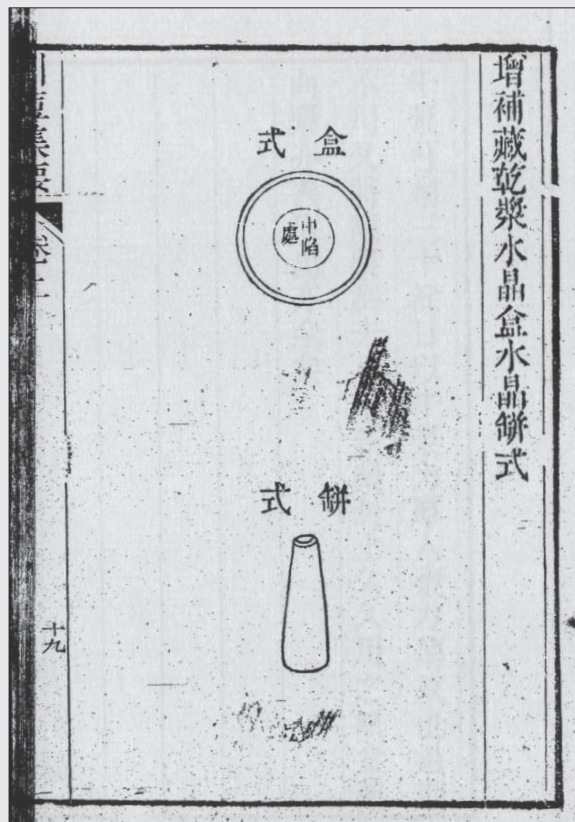 增補藏乾漿水晶盒水晶缾式
盒式
中陷
處
缾式
十九